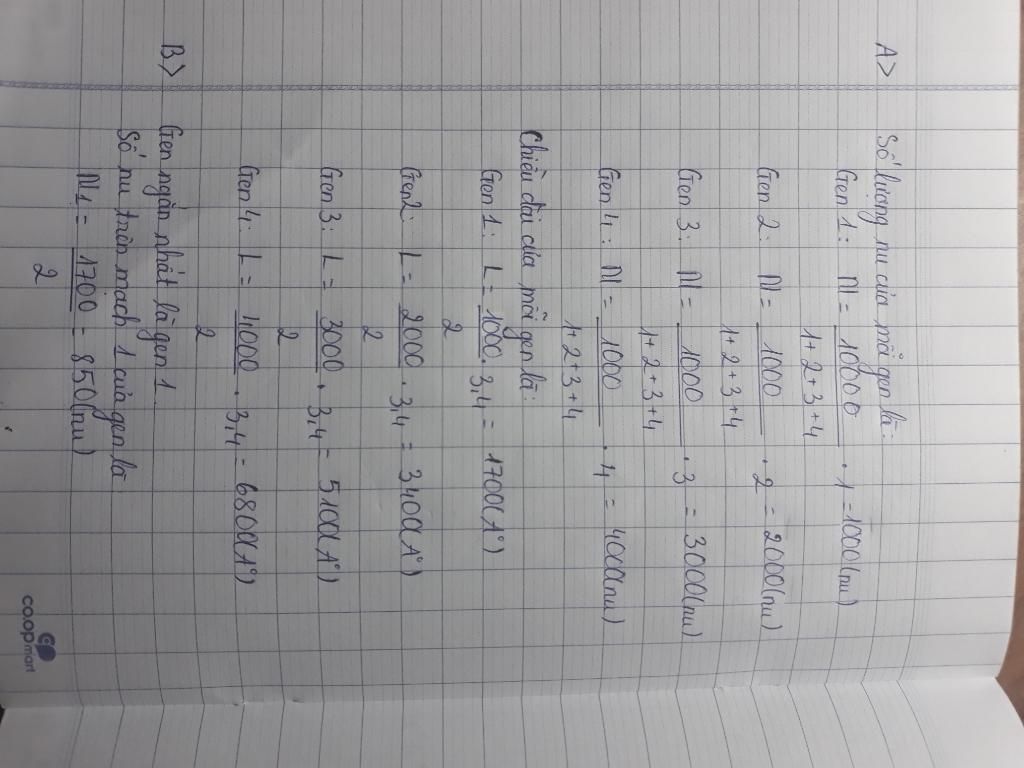 A> Số lượng nu của mỗi gen là:
Gen 1: N = 10000 / 1+2+3+4 . 1 = 1000(nu)
Gen 2: N = 1000 / 1+2+3+4 . 2 = 2000(nu)
Gen 3: N = 1000 / 1+2+3+4 . 3 = 3000(nu)
Gen 4: N = 1000 / 1+2+3+4 . 4 = 4000(nu)
Chiều dài của mỗi gen là:
Gen 1: L = 1000 / 2 . 3,4 = 1700(A°)
Gen 2: L = 2000 / 2 . 3,4 = 3400(A°)
Gen 3: L = 3000 / 2 . 3,4 = 5100(A°)
Gen 4: L = 4000 / 2 . 3,4 = 6800(A°)
B> Gen ngắn nhất là gen 1
Số nu trên mạch 1 của gen là
N1 = 1700 / 2 = 850(nu)
co.opmart